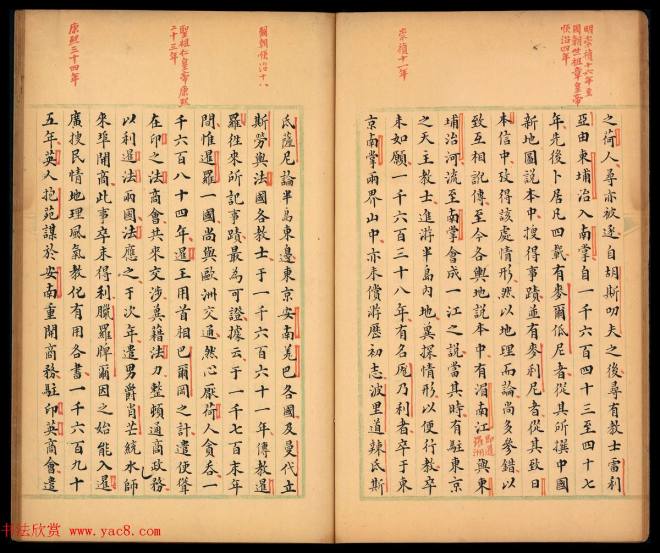 明崇禎十六年至
國朝世祖章皇帝
順治四年
崇禎十一年
之荷人尋亦被逐自胡斯叻夫之後尋有教士雷利
亞由東埔治入南掌自一千六百四十三至四十七
年先後卜居凡四載有麥爾伍尼者從其所撰中國
新地圖說本中搜得事蹟並有麥利尼者從其致日
本信中攷得該處情形然以地理而論尚多參錯以
致互相訛傳至今各輿地說本中有湄南江興東
埔治河流至南掌會成一江之說當其時有駐東京
之天主教士進游半島內地冀探情形以便行教卒
未如願一千六百三十八年有名厖乃利者卒于東
京南掌兩界山中亦未償將歷初志波里道辣氏斯
國朝順治十八
聖祖仁皇帝康熙
二十三年
康熙三十四年
氏薩尼論半島東邊東京安南羌巴各國及曼代立
斯勞與法國各教士于一千六百六十一年傳教暹
羅徃來所記事蹟最為可證據云于一千七百末年
間惟暹羅一國尚與歐洲交通然心厭荷人貪吞一
千六百八十四年暹王用首相巴爾岡之計遣使聳
在印之法商會共來交涉冀藉法力整頓通商政務
以利暹法兩國法應之于次年遣男爵肖芒統水師
來埠開商此事卒未得利臘羅牌爾因之始能入暹
廣搜民情地理風氣教化有用各書一千六百九十
五年英人抱苑謀於安南重開商務駐印英商會遣
书法欣赏 www.yac8.com